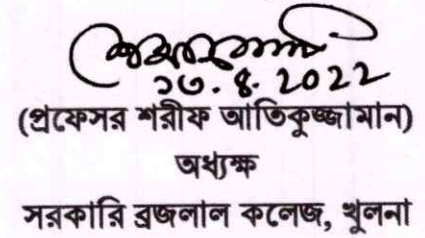 ১৩.৪.2022
(প্রফেসর শরীফ আতিকুজ্জামান)
অধ্যক্ষ
সরকারি ব্রজলাল কলেজ, খুলনা